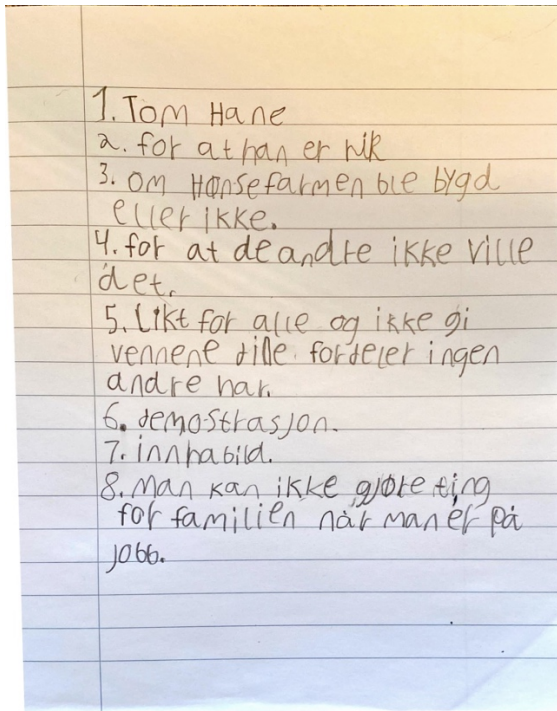 1. Tom Hane
2. for at han er rik
3. om Hønsefarmen ble bygd
eller ikke.
4. for at de andre ikke ville
det.
5. Likt for alle og ikke gi
vennene dille fordeler ingen
andre har.
6. demostrasjon.
7. innhabild.
8. Man kan ikke gjøre ting
for familien når man er på
jobb.